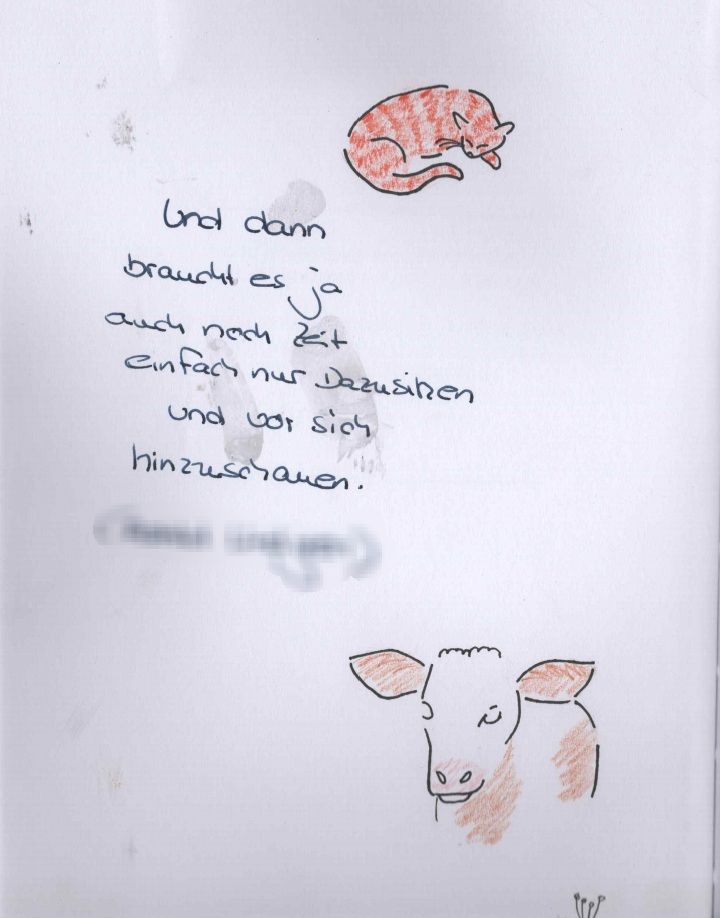 Und dann
braucht es ja
auch noch Zeit
einfach nur Dazusitzen
und vor sich
hinzuschauen.